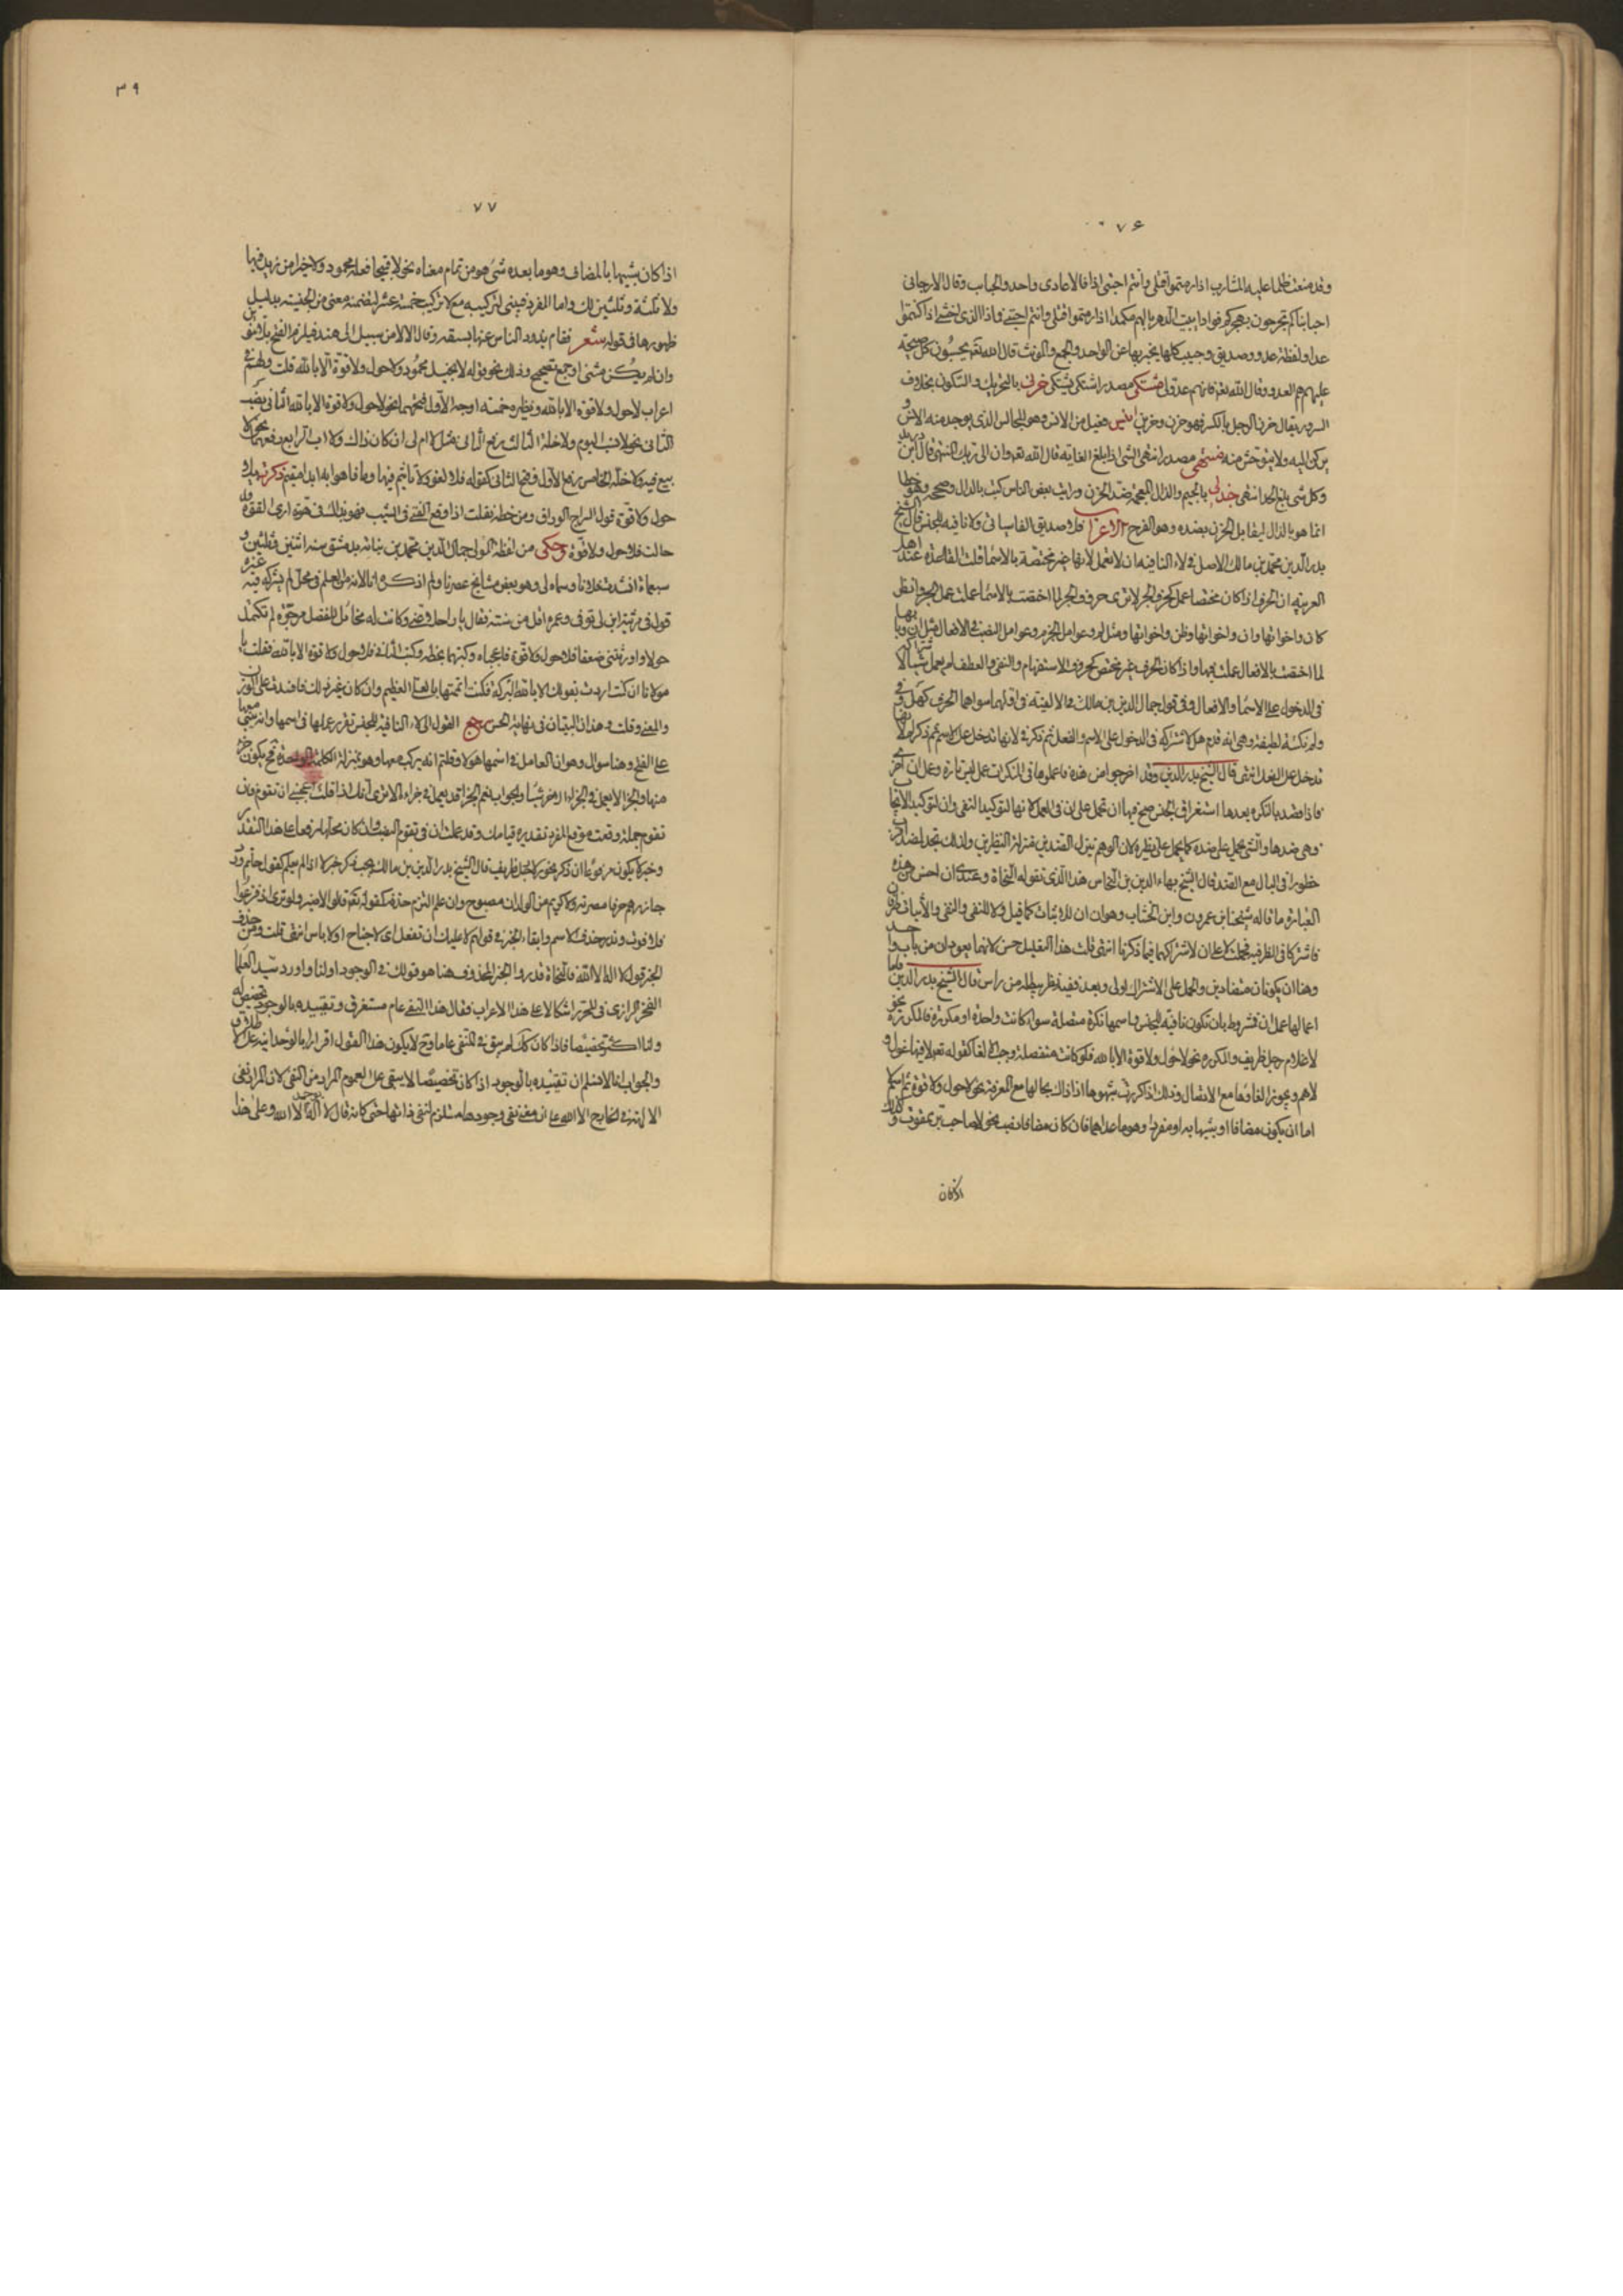 ٧٦
وقد منعت ظلما عليه المشارب اذا رمتموا قتلى وانتم احبتى اذا فالاعادى واحد والحباب وقال الارجانى
احبابنا كم تجرحون بهجركم فوادا يبيت الدهر بالهم مكمدا اذا رمتموا قتلى وانتم احبتى فاذا الذى اخشى اذا كنتموا
عدا ولفظة عدو وصديق وحبيب كلها يخبر بها عن الواحد والجمع والمونث قال الله تعـ يحسبون كل صيحة
عليهم هم العدو وقال الله تعـ فانهم عدو لى مشتكى مصدر اشتكى يشتكى حزنى بالتحريك والسكون بخلاف
السرور يقال حزن الرجل بالكسر فهو حزن وحزين انيس فعيل من الانس وهو المجالس الذى يوجد منه الانس و
يركن اليه ولا يتوحش منه منتهى مصدر انتهى الشى اذا بلغ الغاية قال الله تعـ وان الى ربك المنتهى قال ابن دريد
وكل شى بلغ الحد انتهى جذلى بالجيم والذال المعجمة ضد الحزن ورايت بعض الناس كتبه بالدال وصححه وهو خطا
انما هو بالذال ليقابل الحزن بضده وهو الفرح الاعراب فلا صديق الفا سيانى ولا نافيه للجنس قال الشيخ
بدر الدين محمد بن مالك الاصل فى لاء النافيه ان لا تعمل لانها غير مختصة بالاسماء قلت القاعدة عند اهل
العربية ان الحرف اذا كان مختصا عمل كحرف الجر لا ترى حروف الجر لما اختصت بالاسماء عملت عمل الجر وانظر
كان واخواتها وان واخواتها وظن واخواتها ومثل لم وعوامل الجزم وعوامل النصب فى الافعال مثل ان وبابها
لما اختصت بالافعال عملت فيها واذا كان الحرف غير مختص كحروف الاستفهام والنفى والعطف لم يعمل شيئا لاشتراكه
فى الدخول على الاسماء والافعال وفى قول جمال الدين بن مالك فى الالفية فى اولها سواهما الحرف كهل وفى
ولم نكتة لطيفة وهى انه قدم هل لاشتراكه فى الدخول على الاسم والفعل ثم ذكر فى لانها تدخل على الاسم ثم ذكر لم لانها
تدخل على الفعل انتهى قال الشيخ بدر الدين وقد اخرجوا من هذه فاعملوها فى النكرات عمل ليس تارة وعمل ان اخرى
فاذا قصد بالنكرة بعدها استغراق الجنس صح فيها ان تحمل على ان فى العمل لانها لتوكيد النفى وان لتوكيد الايجاب
وهى ضدها والشى يحمل على ضده كما يحمل على نظيره لان الوهم ينزل الضدين منزلة النظيرين ولذلك تجد الضد اقرب
خطورا فى البال مع الضد قال الشيخ بهاء الدين بن النحاس هذا الذى تقوله النحاة وعندى ان احسن من هذه
العبارة ما قاله شيخنا ابن عمرون وابن الخشاب وهو ان ان للاثبات كما قيل ولا للنفى والنفى والاثبات طرفان
فاشتركا فى الطرفيه فحملت لا على ان لاشتراكهما فيما ذكرنا انتهى قلت هذا التعليل حسن لانهما يعودان من باب واحد
وهنا ان يكونان متضادين والحمل على الاشتراك اولى وبعد ففيه نظر يبطله من راس قال الشيخ بدر الدين واما
اعمالها عمل ان فمشروط بان تكون نافية للجنس واسمها نكرة متصلة سواء كانت واحدة او مكررة فالمكررة نحو
لا غلام رجل ظريف والمكررة نحو لا حول ولا قوة الا بالله فلو كانت منفصلة وجب الالغا كقوله تعـ لا فيها غول ولا
لاهم ويجوز الغاؤها مع الاتصال وذلك اذا كررت شبهوها اذ ذاك بحالها مع المعرفة نحو لا حول ولا قوة ثم اسم لا
اما ان يكون مضافا او شبيها به او مفردا وهو ما عداهما فان كان مضافا نصب نحو لا صاحب بر ممقوت وكذلك
اذا كان
٣٩
٧٧
اذا كان شبيها بالمضاف وهو ما بعده شى هو من تمام معناه نحو لا قبيحا فعله محمود ولا خيرا من زيد فيها
ولا ثلثة وثلثين لك واما المفرد فيبنى لتركيبه مع لا تركيب خمسة عشر لتضمنه معنى من الجنسية بدليل
ظهورها فى قوله شعر فقام يذود الناس عنها بسيفه وقال الا لا من سبيل الى هند فيلزم الفتح بلا تنوين
وان لم يكن مثنى او جمع تصحيح وذلك نحو قوله لا بخيل محمود ولا حول ولا قوة الا بالله قلت ولهم فى
اعراب لا حول ولا قوة الا بالله ونظيره خمسة اوجه الاول فتحهما نحو لا حول ولا قوة الا بالله الثانى نصب
الثانى نحو لا نسب اليوم ولا خلة الثالث رفع الثانى مثل لا ام لى ان كان ذاك ولا اب الرابع رفعهما نحو لا
بيع فيه ولا خلة الخامس رفع الاول وفتح الثانى كقوله فلا لغو ولا تاثيم فيها وما فاهوا به ابدا مقيم ذكرت بلا
حول ولا قوة قول السراج الوراق ومن خطه نقلت اذا وقع الفتى فى الشيب فهو بذلك فى هوة ارى لقوة وله
حالت فلا حول ولا قوة وحكى من لفظه المولى جمال الدين محمد بن نباته بدمشق سنه اثنين وثلثين و
سبعماة انشدت فلانا وسماه لى وهو بعض مشايخ عصرنا ولم اذكره انا لانه من العلم فى محل لم يشركه فيه غيره
قولى فى مرثية ابن لى توفى وعمره اقل من سنة فقال يا راحلا عنى وكانت له مخائل للفضل مرجوه لم تكتمل
حولا واورثتنى ضعفا فلا حول ولا قوة فاعجباه وكتبهما بخطه وكتب الثانى فلا حول ولا قوة الا بالله فقلت يا
مولانا ان كنت اردت بقولك الا بالله البركة فكنت اتممتها بالعلى العظيم وان كان غير ذلك فافسدت على الوزن
والمعنى وقلت وهذان البيتان فى نهاية الحسن رجع القول الى لاء النافية للجنس تقرر عملها فى اسمها وانه بنى معها
على الفتح وهنا سوال وهو ان العامل فى اسمها هو لا وقلتم انه يركب معها وهو بمنزلة الكلمة الواحدة فح يكون جزءا
منها والجزء لا يعمل فى الجزء الاخر شيئا والجواب نعم الجزء قد يعمل فى جزءه الا ترى انك اذا قلت اعجبنى ان تقوم فان
تقوم جملة وقعت موقع المفرد تقديره قيامك وقد عملت ان فى تقوم النصب وان كان محلها رفعا على هذا التقدير
وخبر لا يكون مرفوعا ان ذكر نحو لا رجل ظريف قال الشيخ بدر الدين بن مالك يجب ذكر خبر لا اذا لم يعلم كقول حاتم ورد
جازرهم حرفا مصرمة ولا كريم من الولدان مصبوح وان علم التزم حذفه كقوله تعـ قالوا لا ضير ولو ترى اذ فزعوا
فلا فوت وندر حذف الاسم وابقاء الخبر فى قولهم لا عليك ان تفعل اى لا جناح او لا باس انتهى قلت ومن حذف
الخبر قول لا اله الا الله فالنحاة قدروا الخبر المحذوف هنا هو قولك فى الوجود او لنا واورد سيد العلما
الفخر الرازى فى المحرر اشكالا على هذا الاعراب فقال هذا النفى عام مستغرق وتقييده بالوجود تخصيص له
ولنا اكثر تخصيصا فاذا كان كذلك لم يبق فى المنفى عاما وح لا يكون هذا القول اقرارا بالوحدانية على الاطلاق
والجواب انا لا نسلم ان تقييده بالوجود اذا كان تخصيصا لا يبقى على العموم المراد من النفى لان المراد نفى
الالهة فى الخارج الا الله على ان معنى نفى وجودها مستلزم لنفى ذاتها حتى كانه قال لا اله يوجد الا الله وعلى هذا